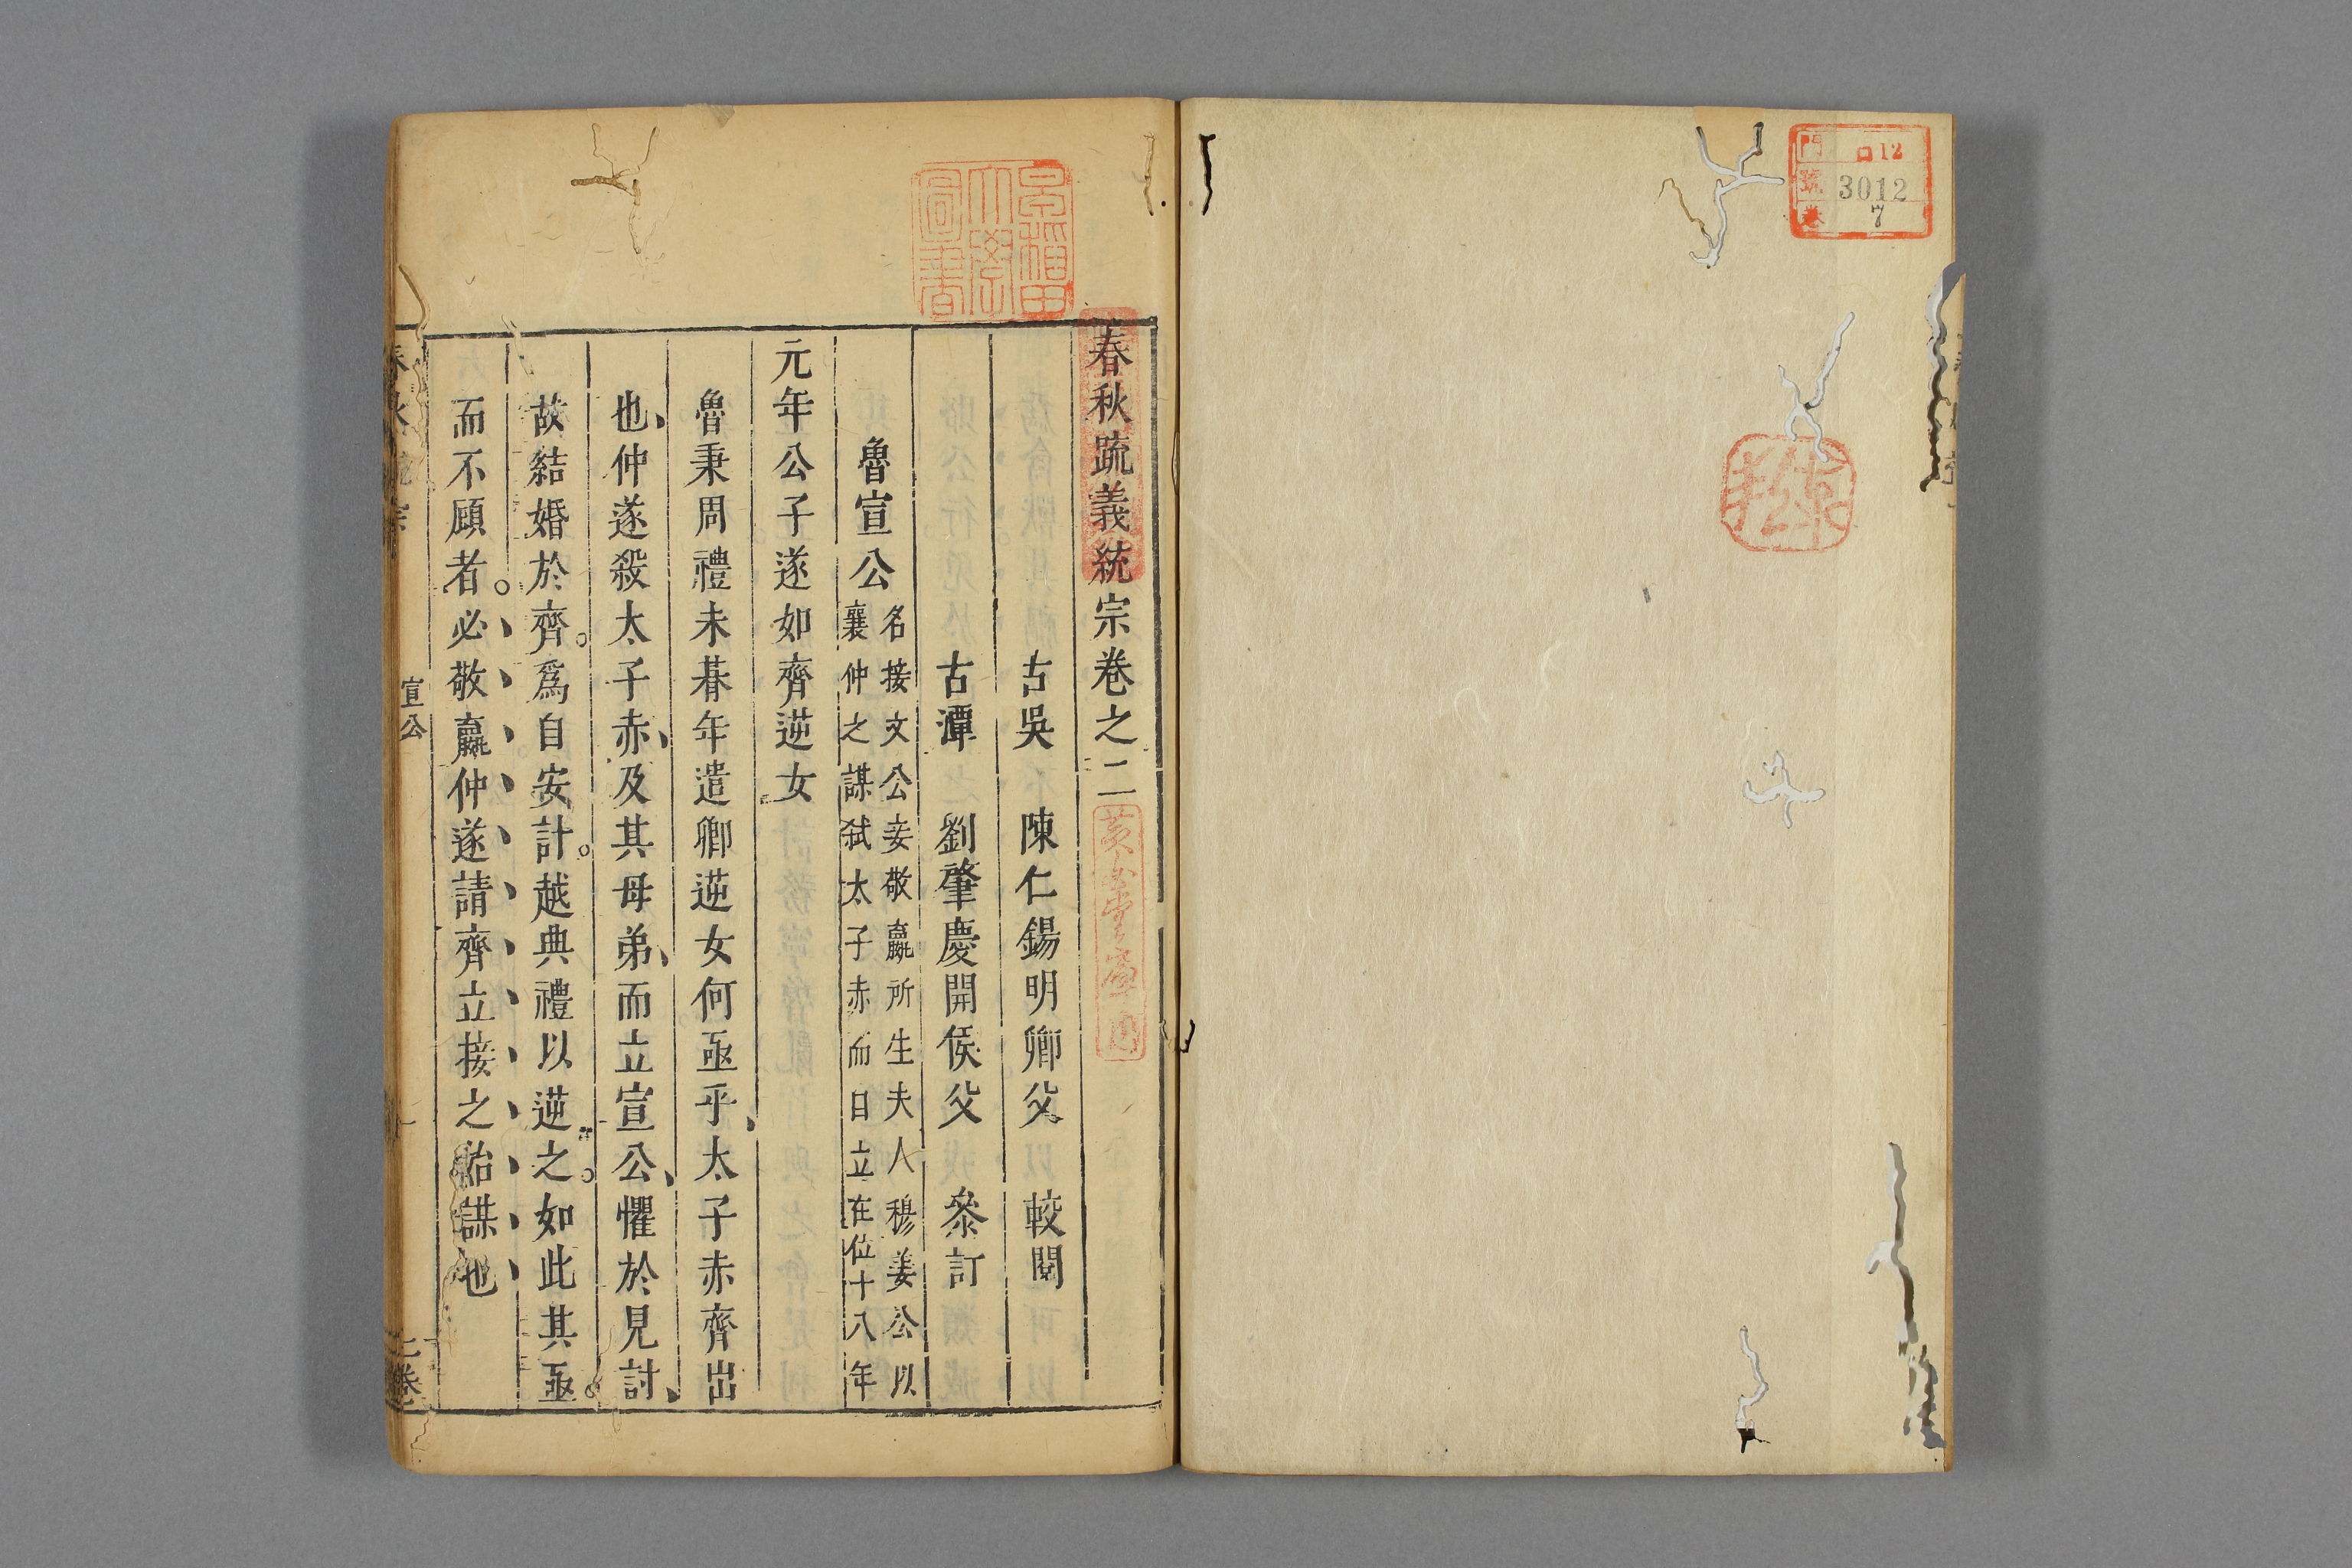 門 ロ12
號 3012
卷 7
早稲田大學圖書
春秋疏義統宗卷之二
古吳 陳仁錫明卿父 較閱
古潭 劉肇慶開侯父 叅訂
魯宣公 名接文公妾敬嬴所生夫人穆姜公以
襄仲之謀弑太子赤而自立在位十八年
元年公子遂如齊逆女
魯秉周禮未朞年遣卿逆女何亟乎太子赤齊出
也仲遂殺太子赤及其母弟而立宣公懼於見討
故結婚於齊爲自安計越典禮以逆之如此其亟
而不顧者必敬嬴仲遂請齊立接之始謀也
宣公